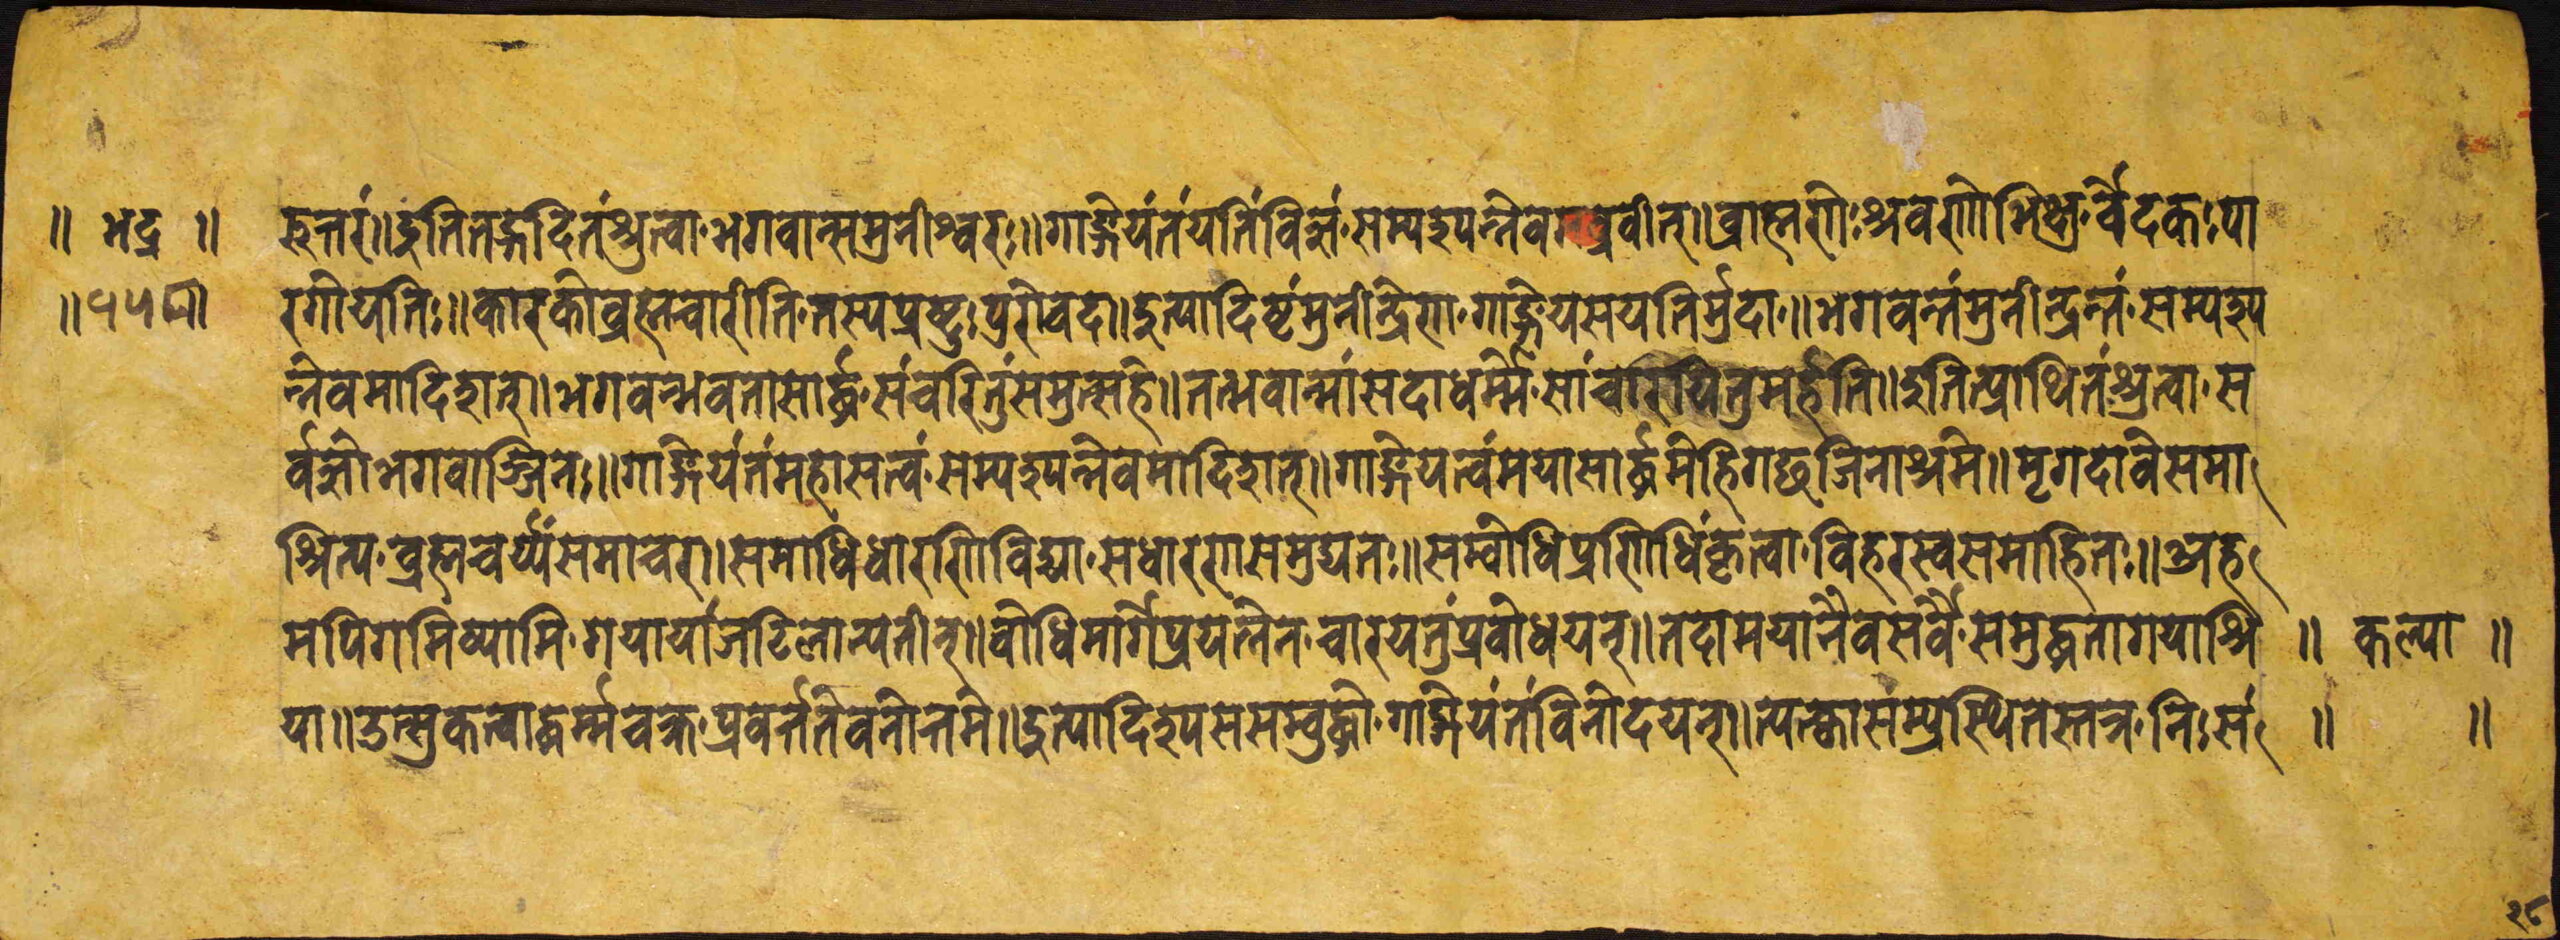 ॥ भद्र ॥ हूत्तरं॥इतितद्गदितंश्रुत्वा·भगवान्समुनीश्वरः॥गाङ्गेयंतंयतिंविज्ञं·सम्पश्यन्नेवमब्रवीत्॥ब्राह्मणोःश्रवणोभिक्षु·र्वेदकःपा
॥१५८॥ रगोयतिः॥कारकोब्रह्मचारीति·तस्यप्रष्टुःपुरोवदा॥इत्यादिष्टंमुनीन्द्रेण·गाङ्गेयसयतिर्मुदा·॥भगवन्तंमुनीन्द्रन्तं·सम्पश्य
न्नेवमादिशत्॥भगवन्भवतासार्द्धं·संचरितुंसमुत्सहे॥तत्भवान्मांसदाधर्म्मे·सांचारयितुमर्हति॥इतित्प्रार्थितंश्रुत्वा·स
र्वज्ञोभगवाञ्जिनः॥गाङ्गेयंतंमहासत्वं·सम्पश्यन्नेवमादिशत्॥गाङ्गेयत्वंमयासार्द्धमेहिगछजिनाश्रमे॥मृगदावेसमा
श्रित्य·ब्रह्मचर्य्यंसमाचर॥समाधिंधारणिविद्या·सधारणसमुद्यतः॥सम्बोधिप्रणिधिंकृत्वा·विहरस्वसमाहितः॥अह
मपिगमिष्यामि·गयायांजटिलान्यतीन्॥बोधिमार्गेप्रयत्नेन·चारयतुंप्रबोधयन्॥तदामयानैवसर्वै·समुद्धतागयाश्रि ॥ कल्पा ॥
या॥उत्सुकत्वाद्धर्म्मचक्र·प्रवर्त्ततेवनोत्तमे॥इत्यादिश्यससम्बुद्धो·गाङ्गेयंतंविनोदयन्॥त्यक्त्वासंम्प्रस्थितस्तत्र·निःसं ॥ ॥
२८